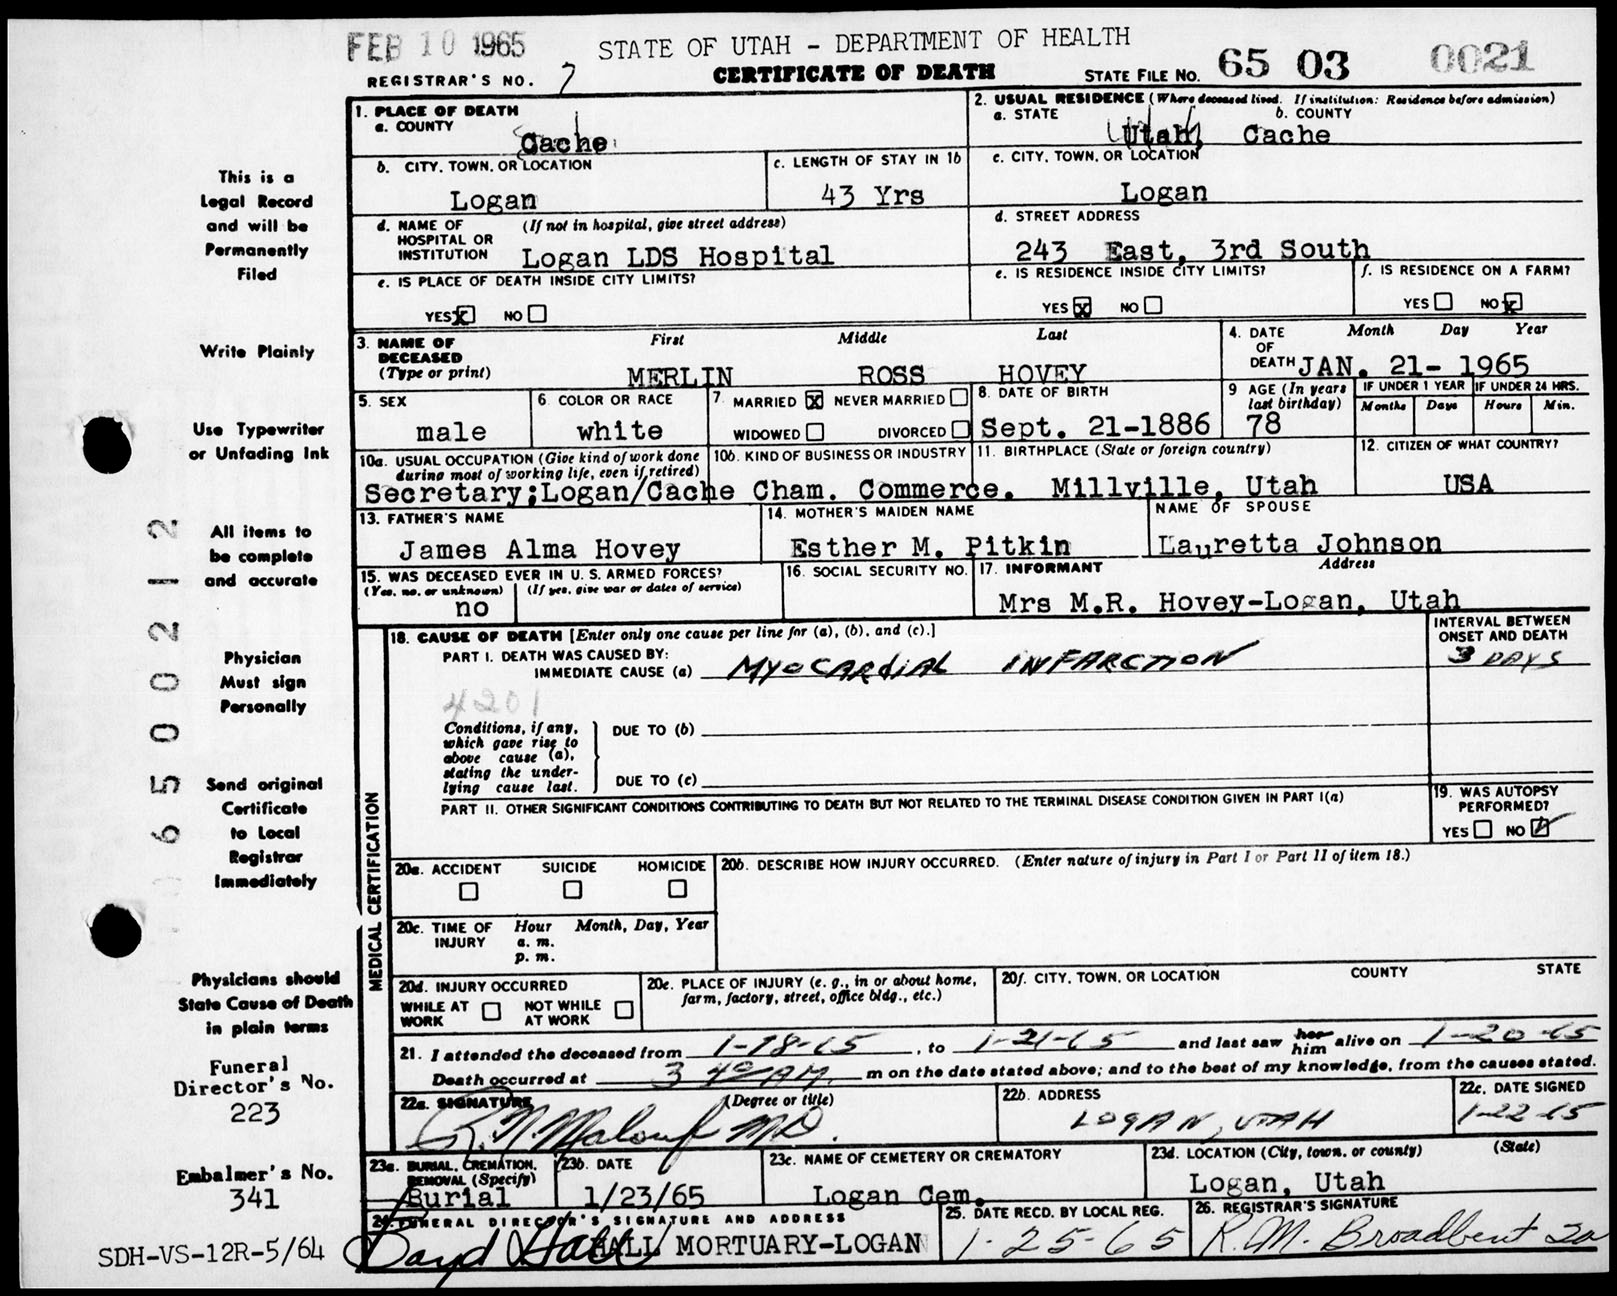 FEB 10 1965
STATE OF UTAH - DEPARTMENT OF HEALTH
REGISTRAR'S NO. 7
CERTIFICATE OF DEATH
STATE FILE NO. 65 03 0021
1. PLACE OF DEATH
a. COUNTY
Cache
2. USUAL RESIDENCE (Where deceased lived. If institution: Residence before admission)
a. STATE b. COUNTY
Utah, Cache
b. CITY, TOWN, OR LOCATION
Logan
c. LENGTH OF STAY IN 1b
43 Yrs
c. CITY, TOWN, OR LOCATION
Logan
d. NAME OF HOSPITAL OR INSTITUTION (If not in hospital, give street address)
Logan LDS Hospital
d. STREET ADDRESS
243 East, 3rd South
e. IS PLACE OF DEATH INSIDE CITY LIMITS?
YES x NO
e. IS RESIDENCE INSIDE CITY LIMITS?
YES x NO
f. IS RESIDENCE ON A FARM?
YES NO x
3. NAME OF DECEASED (Type or print)
First Middle Last
MERLIN ROSS HOVEY
4. DATE OF DEATH Month Day Year
JAN. 21- 1965
5. SEX
male
6 COLOR OR RACE
white
7 MARRIED x NEVER MARRIED
WIDOWED DIVORCED
8. DATE OF BIRTH
Sept. 21-1886
9 AGE (In years last birthday)
78
IF UNDER 1 YEAR
Months Days
IF UNDER 24 HRS.
Hours Min.
10a. USUAL OCCUPATION (Give kind of work done during most of working life, even if retired)
10b. KIND OF BUSINESS OR INDUSTRY
Secretary;Logan/Cache Cham. Commerce.
11. BIRTHPLACE (State or foreign country)
Millville, Utah
12. CITIZEN OF WHAT COUNTRY?
USA
13. FATHER'S NAME
James Alma Hovey
14. MOTHER'S MAIDEN NAME
Esther M. Pitkin
NAME OF SPOUSE
Lauretta Johnson
15. WAS DECEASED EVER IN U. S. ARMED FORCES?
(Yes, no, or unknown) (If yes, give war or dates of service)
no
16. SOCIAL SECURITY NO.
17. INFORMANT Address
Mrs M.R. Hovey-Logan, Utah
MEDICAL CERTIFICATION
18. CAUSE OF DEATH [Enter only one cause per line for (a), (b), and (c).]
INTERVAL BETWEEN ONSET AND DEATH
PART I. DEATH WAS CAUSED BY:
IMMEDIATE CAUSE (a) MYOCARDIAL INFARCTION 3 DAYS
4201
Conditions, if any, which gave rise to above cause (a), stating the underlying cause last.
DUE TO (b)
DUE TO (c)
PART II. OTHER SIGNIFICANT CONDITIONS CONTRIBUTING TO DEATH BUT NOT RELATED TO THE TERMINAL DISEASE CONDITION GIVEN IN PART I(a)
19. WAS AUTOPSY PERFORMED?
YES NO
20a. ACCIDENT SUICIDE HOMICIDE
20b. DESCRIBE HOW INJURY OCCURRED. (Enter nature of injury in Part I or Part II of item 18.)
20c. TIME OF INJURY Hour Month, Day, Year
a. m.
p. m.
20d. INJURY OCCURRED
WHILE AT WORK NOT WHILE AT WORK
20e. PLACE OF INJURY (e. g., in or about home, farm, factory, street, office bldg., etc.)
20f. CITY, TOWN, OR LOCATION COUNTY STATE
21. I attended the deceased from 1-18-65, to 1-21-65 and last saw her him alive on 1-20-65
Death occurred at 3 40 AM. m on the date stated above; and to the best of my knowledge, from the causes stated.
22a. SIGNATURE (Degree or title)
R. N. Malouf MD.
22b. ADDRESS
LOGAN, UTAH
22c. DATE SIGNED
1-22-65
23a. BURIAL, CREMATION, REMOVAL (Specify)
Burial
23b. DATE
1/23/65
23c. NAME OF CEMETERY OR CREMATORY
Logan Cem.
23d. LOCATION (City, town, or county) (State)
Logan, Utah
24. FUNERAL DIRECTOR'S SIGNATURE AND ADDRESS
Boyd Hall HALL MORTUARY-LOGAN
25. DATE RECD. BY LOCAL REG.
1-25-65
26. REGISTRAR'S SIGNATURE
R.M. Broadbent
This is a
Legal Record
and will be
Permanently
Filed
Write Plainly
Use Typewriter
or Unfading Ink
All items to
be complete
and accurate
Physician
Must sign
Personally
Send original
Certificate
to Local
Registrar
Immediately
Physicians should
State Cause of Death
in plain terms
Funeral
Director's No.
223
Embalmer's No.
341
SDH-VS-12R-5/64
65 0 0 2 1 2